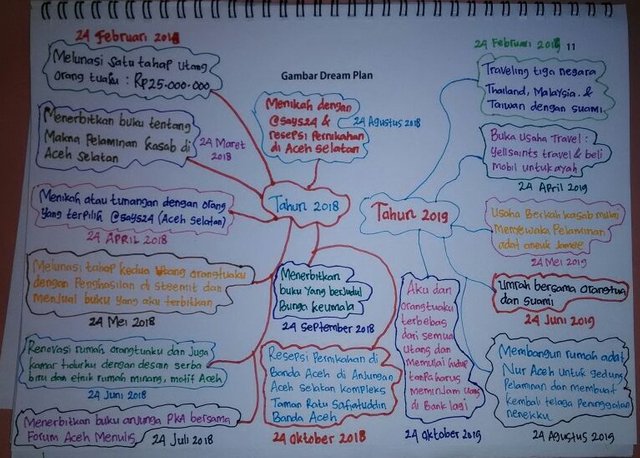 24 Februari 2018
Melunasi satu tahap utang
orang tuaku : Rp25.000.000
Menerbitkan buku tentang
Makna Pelaminan Kasab di
Aceh Selatan
24 Maret
2018
Menikah atau tunangan dengan orang
yang terpilih @says24 (Aceh selatan)
24 APRIL 2018
Melunasi tahap kedua utang orangtuaku
dengan Penghasilan di Steemit dan
menjual buku yang aku terbitkan
24 Mei 2018
Renovasi rumah orangtuaku dan juga
kamar tidurku dengan desain serba
biru dan etnik rumah minang, motif Aceh
24 Juni 2018
Menerbitkan buku anjungan PKA bersama
Forum Aceh Menulis
24 Juli 2018
Gambar Dream Plan
Menikah dengan
@says24 &
resepsi Pernikahan
di Aceh selatan
24 Agustus 2018
Tahun 2018
Menerbitkan
buku yang berjudul
Bunga keumala
24 September 2018
Resepsi Pernikahan di
Banda Aceh di Anjungan
Aceh Selatan Kompleks
Taman Ratu Safiatuddin
Banda Aceh
24 Oktober 2018
Tahun 2019
24 Februari 2019
11
Traveling tiga negara
Thailand, Malaysia &
Taiwan dengan suami
Buka Usaha Travel :
Yellsaints travel & beli
Mobil untuk ayah
24 April 2019
Usaha Berkah kasab mulai
Menyewaka Pelaminan
adat aneuk Jamee
24 Mei 2019
Umrah bersama orangtua
dan suami
24 Juni 2019
Membangun rumah adat
Nur Aceh Untuk gedung
Pelaminan dan membuat
kembali telaga Peninggalan
nenekku
24 Agustus 2019
Aku dan
orangtuaku
terbebas
dari semua
utang dan
Memulai hidup
tanpa harus
meminjam uang
di Bank lagi
24 Oktober 2019